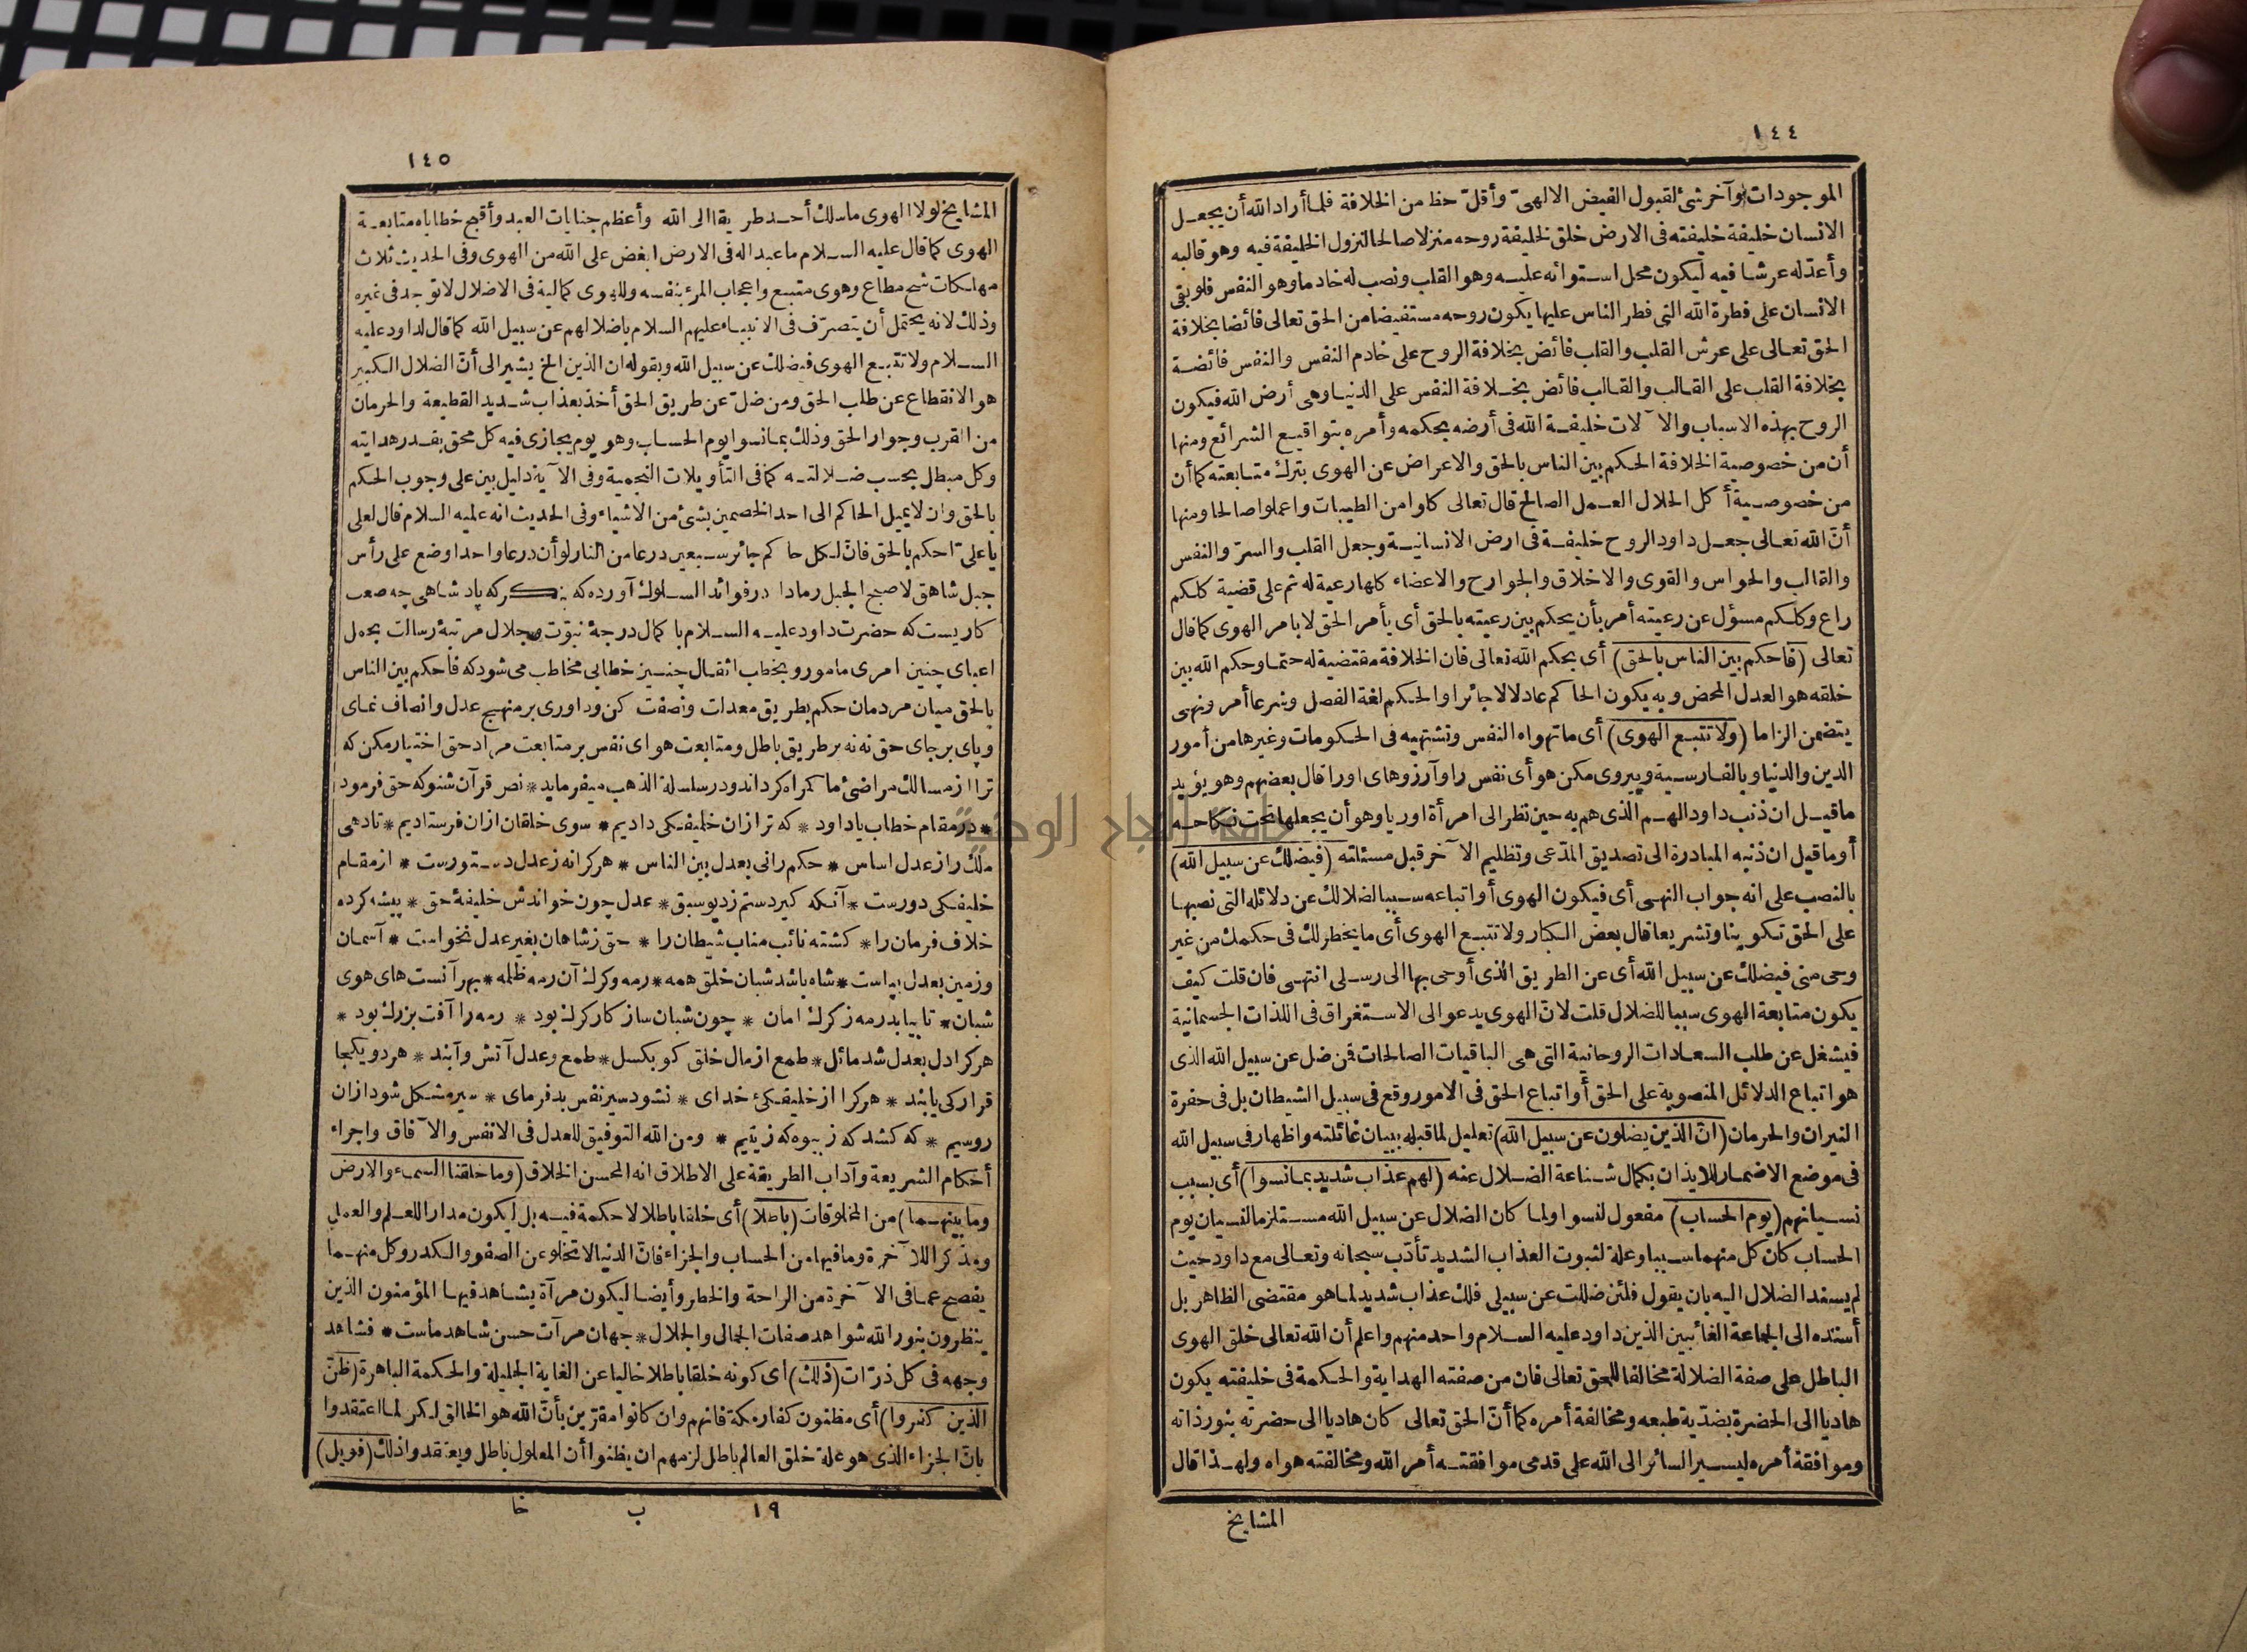 ١٤٤
الموجودات وآخر شئ لقبول الفيض الالهىّ وأقلّ حظ من الخلافة فلما أراد الله أن يجعل
الانسان خليفة خليفته فى الارض خلق لخليفة روحه منزلا صالحا لنزول الخليفة فيه وهو قالبه
وأعدّ له عرشا فيه ليكون محل استوائه عليه وهو القلب ونصب له خادما وهو النفس فلو بقى
الانسان على فطرة الله التى فطر الناس عليها يكون روحه مستفيضا من الحق تعالى فائضا بخلافة
الحق تعالى على عرش القلب والقلب فائض بخلافة الروح على خادم النفس والنفس فائضة
بخلافة القلب على القالب والقالب فائض بخلافة النفس على الدنيا وهى أرض الله فيكون
الروح بهذه الاسباب والآلات خليفة الله فى أرضه بحكمه وأمره بتواقيع الشرائع ومنها
أن من خصوصية الخلافة الحكم بين الناس بالحق والاعراض عن الهوى بترك متابعته كما أن
من خصوصية أكل الحلال العمل الصالح قال تعالى كلوا من الطيبات واعملوا صالحا ومنها
أنّ الله تعالى جعل داود الروح خليفة فى ارض الانسانية وجعل القلب والسرّ والنفس
والقالب والحواس والقوى والاخلاق والجوارح والاعضاء كلها رعية له ثم على قضية كلكم
راع وكلكم مسؤل عن رعيته أمر بأن يحكم بين رعيته بالحق أى بأمر الحق لا بامر الهوى كما قال
تعالى (فاحكم بين الناس بالحق) أى بحكم الله تعالى فان الخلافة مقتضية له حتما وحكم الله بين
خلقه هو العدل المحض وبه يكون الحاكم عادلا لا جائرا والحكم لغة الفصل وشرعا أمر ونهى
يتضمن الزاما (ولا تتبع الهوى) أى ما تهواه النفس وتشتهيه فى الحكومات وغيرها من أمور
الدين والدنيا وبالفارسية وپيروى مكن هوأى نفس را وآرزوهاى اورا قال بعضهم وهو يؤيد
ما قيل ان ذنب داود الهم الذى هم به حين نظر الى امرأة اوريا وهو أن يجعلها تحت نكاحه
أو ما قيل ان ذنبه المبادرة الى تصديق المدّعى وتظليم الآخر قبل مسئلته (فيضلك عن سبيل الله)
بالنصب على انه جواب النهى أى فيكون الهوى أو اتباعه سببا لضلالك عن دلائله التى نصبها
على الحق تكوينا وتشريعا قال بعض الكبار ولا تتبع الهوى أى ما يخطر لك فى حكمك من غير
وحى منى فيضلك عن سبيل الله أى عن الطريق الذى أوحى بها الى رسلى انتهى فان قلت كيف
يكون متابعة الهوى سببا للضلال قلت لانّ الهوى يدعو الى الاستغراق فى اللذات الجسمانية
فيشغل عن طلب السعادات الروحانية التى هى الباقيات الصالحات فمن ضل عن سبيل الله الذى
هو اتباع الدلائل المنصوبة على الحق أو اتباع الحق فى الامور وقع فى سبيل الشيطان بل فى حفرة
النيران والحرمان (انّ الذين يضلون عن سبيل الله) تعليل لما قبله ببيان غائلته واظهار فى سبيل الله
فى موضع الاضمار للايذان بكمال شناعة الضلال عنه (لهم عذاب شديد بما نسوا) أى بسبب
نسيانهم (يوم الحساب) مفعول لنسوا ولما كان الضلال عن سبيل الله مستلزما لنسيان يوم
الحساب كان كل منهما سببا وعلة لثبوت العذاب الشديد تأدّب سبحانه وتعالى مع داود حيث
لم يسند الضلال اليه بان يقول فلئن ضللت عن سبيلى فلك عذاب شديد لما هو مقتضى الظاهر بل
أسنده الى الجماعة الغائبين الذين داود عليه السلام واحد منهم واعلم أن الله تعالى خلق الهوى
الباطل على صفة الضلالة مخالفا للحق تعالى فان من صفته الهداية والحكمة فى خليفته يكون
هاديا الى الحضرة بضدّية طبعه ومخالفة أمره كما أنّ الحق تعالى كان هاديا الى حضرته بنور ذاته
وموافقة أمره ليسير السائر الى الله على قدمى موافقته أمر الله ومخالفته هواه ولهذا قال
المشايخ
١٤٥
المشايخ لولا الهوى ما سلك أحد طريقا الى الله وأعظم جنايات العبد وأقبح خطاياه متابعة
الهوى كما قال عليه السلام ما عبد اله فى الارض ابغض على الله من الهوى وفى الحديث ثلاث
مهلكات شح مطاع وهوى متبع واعجاب المرء بنفسه وللهوى كمالية فى الاضلال لا توجد فى غيره
وذلك لانه يحتمل أن يتصرّف فى الانبياء عليهم السلام باضلالهم عن سبيل الله كما قال لداود عليه
السلام ولا تتبع الهوى فيضلك عن سبيل الله وبقوله ان الذين الخ يشير الى أنّ الضلال الكبير
هو الانقطاع عن طلب الحق ومن ضلّ عن طريق الحق أخذ بعذاب شديد القطيعة والحرمان
من القرب وجوار الحق وذلك بما نسوا يوم الحساب وهو يوم يجازى فيه كل محق بقدر هدايته
وكل مبطل بحسب ضلالته كما فى التأويلات النجمية وفى الآية دليل بين على وجوب الحكم
بالحق وان لا يميل الحاكم الى احد الخصمين بشئ من الاشياء وفى الحديث انه عليه السلام قال لعلى
يا علىّ احكم بالحق فانّ لكل حاكم جائر سبعين درعا من النار لو أن درعا واحدا وضع على رأس
جبل شاهق لاصبح الجبل رمادا در فوائد السلوك آورده كه بنگر كه پادشاهى چه صعب
كاريست كه حضرت داود عليه السلام با كمال درجهٔ نبوّت وجلال مرتبهٔ رسالت بحمل
اعباى چنين امرى مامور وبخطب اثقال چنين خطابى مخاطب مى شود كه فاحكم بين الناس
بالحق ميان مردمان حكم بطريق معدلت ونصفت كن وداورى بر منهج عدل وانصاف نماى
وپاى بر جاى حق نه نه بر طريق باطل ومتابعت هواى نفس بر متابعت مراد حق اختيار مكن كه
ترا از مسالك مراضئ ما گمراه گرداند ودر سلسلة الذهب ميفرمايد * نص قرآن شنو كه حق فرمود
* در مقام خطاب يا داود * كه ترا زان خليفگى داديم * سوى خلقان ازان فرستاديم * تا دهى
ملك را ز عدل اساس * حكم رانى بعدل بين الناس * هركرا نه ز عدل دستورست * از مقام
خليفگى دورست * آنكه گيرد ستم ز ديو سبق * عدل چون خواندش خليفهٔ حق * پيشه كرده
خلاف فرمان را * گشته نائب مناب شيطان را * حق ز شاهان بغير عدل نخواست * آسمان
وزمين بعدل بپاست * شاه باشد شبان خلق همه * رمه وگرك آن رمه ظلمه * بهر آنست هاى هوى
شبان * تا بيابد رمه ز گرك امان * چون شبان ساز كار گرك بود * رمه را آفت بزرك بود *
هركرا دل بعدل شد مائل * طمع از مال خلق كو بگسل * طمع وعدل آتش وآبند * هر دو يكجا
قرار كى يابند * هركرا از خليفگئ خداى * نشود سير نفس بد فرماى * سير مشكل شود ازان
روسيم * كه كشد كه ز بيوه كه ز يتيم * ومن الله التوفيق للعدل فى الانفس والآفاق واجراء
أحكام الشريعة وآداب الطريقة على الاطلاق انه المحسن الخلاق (وما خلقنا السماء والارض
وما بينهما) من المخلوقات (باطلا) أى خلقا باطلا لا حكمة فيه بل ليكون مدارا للعلم والعمل
ومذكرا للآخرة وما فيها من الحساب والجزاء فانّ الدنيا لا تخلو عن الصفو والكدر وكل منهما
يفصح عما فى الآخرة من الراحة والخطر وأيضا ليكون مرآة يشاهد فيها المؤمنون الذين
ينظرون بنور الله شواهد صفات الجمال والجلال * جهان مرآت حسن شاهد ماست * فشاهد
وجهه فى كل ذرّات (ذلك) أى كونه خلقا باطلا خاليا عن الغاية الجليلة والحكمة الباهرة (ظنّ
الذين كفروا) أى مظنون كفار مكة فانهم وان كانوا مقرّين بأنّ الله هو الخالق لكن لما اعتقدوا
بانّ الجزاء الذى هو علة خلق العالم باطل لزمهم ان يظنوا أن المعلول باطل ويعتقدوا ذلك (فويل)
١٩ ب خا
جامعة النجاح الوطنية